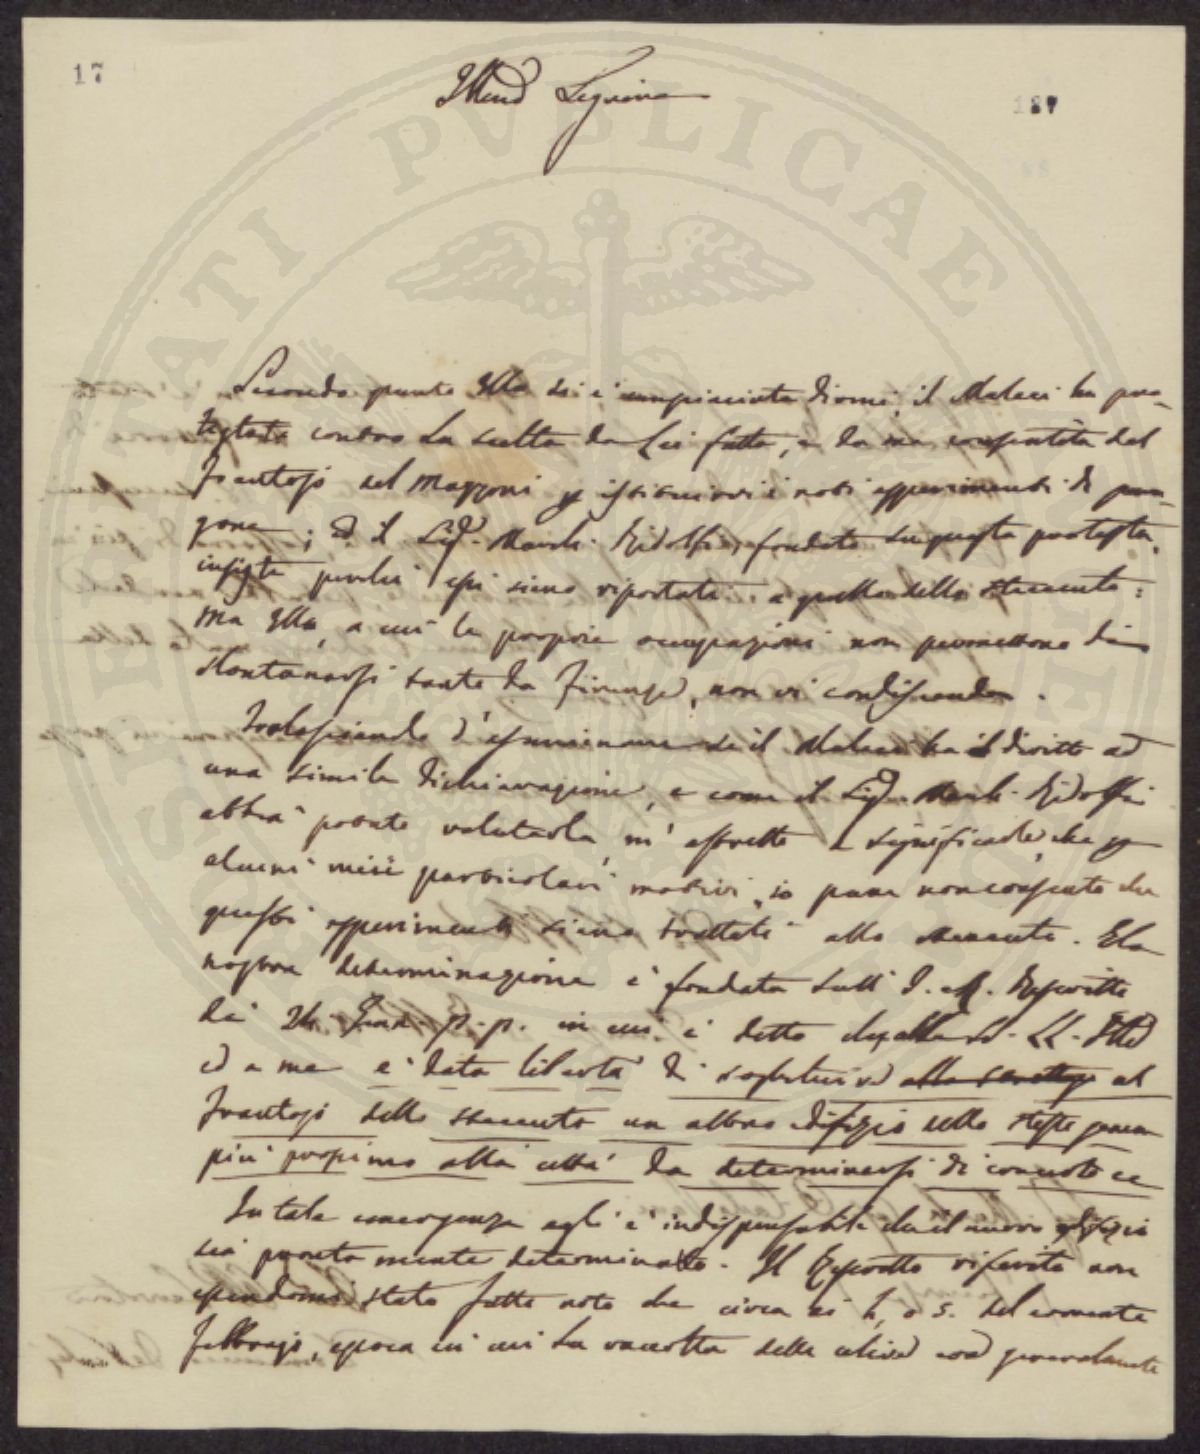 17
187
Illmo Signore
Secondo quanto Ella si è compiaciuta dirmi, il Malacci ha pro-
testato contro la scelta da Lei fatta, e da me consentita del
frantojo del Mazzoni p istituirvi i noti esperimenti di para-
gone; ed il Sigr. March. Ridolfi, fondato su questa protesta,
insiste perché essi sieno riportati a quello dello Steccuto:
Ma Ella, a cui le proprie occupazioni non permettono di
slontanarsi tanto da Firenze, non vi condiscende.
Tralasciando d'esaminare se il Malacci ha il diritto ad
una simile dichiarazione, e come il Sigr. March. Ridolfi
abbia potuto valutarla, m'affretto a significarle, che p
alcuni miei particolari motivi, io pure non consento che
questi esperimenti sieno trattati allo Steccuto. E la
nostra determinazione è fondata sull' I. e R. Rescritto
de' 24 Genn. p. p. in cui è detto che alla S. LL. Illma
ed a me è data libertà di sostituire al
frantojo dello Steccuto un altro edifizio dello stesso genere
più prossimo alla città da determinarsi di concerto ec
In tale emergenza egli è indispensabile che il nuovo edifizio
sia prontamente determinato. Il Rescritto riferito non
essendomi stato fatto noto che circa ai 4, o 5. del corrente
Febbrajo, epoca in cui la raccolta delle olive era generalmente